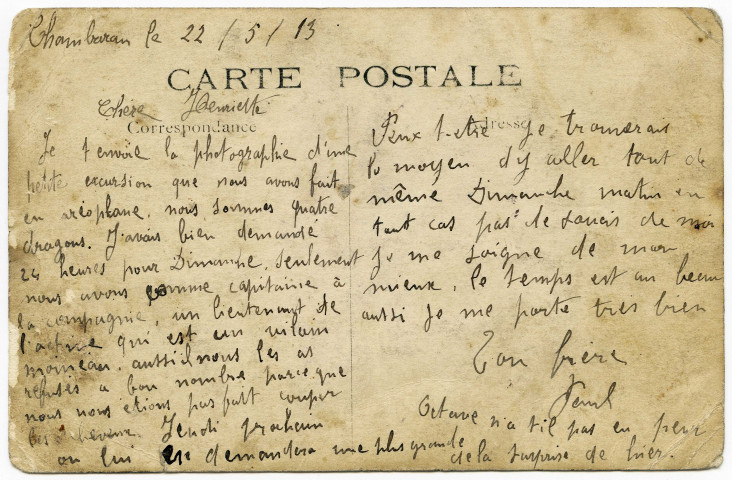 Chambaran le 22/5/13
CARTE POSTALE
Chère Henriette
Correspondance
Je t envoie la photographie d'une
petite excursion que nous avons fait
en aréoplane. nous sommes quatre
dragons. J'avais bien demandé
24 heures pour Dimanche. seulement
nous avons comme capitaine à
la compagnie, un lieutenant de
l'active qui est un vilain
moineau. aussi il nous les as
refusés a bon nombre parce que
nous nous etions pas fait couper
les cheveux. Jeudi prochain
on lui en demandera une plus grande
Adresse
Peux t-etre je trouverais
le moyen d'y aller tout de
même Dimanche matin en
tout cas pas de soucis de moi
je me soigne de mon
mieux, le temps est au beau
aussi je me porte très bien
Ton frère
Paul
Octave n'a t'il pas eu peur
de la surprise de hier.